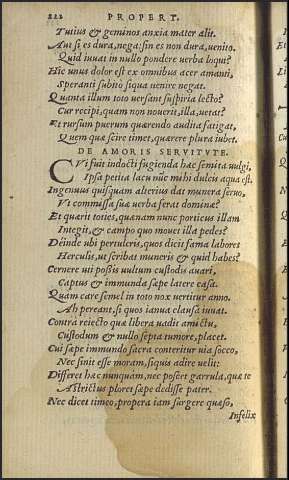 222 PROPERT.
Tutius & geminos anxia mater alit.
Aut si es dura, nega: sin es non dura, uenito.
Quid iuuat in nullo pondere uerba loqui?
Hic unus dolor est ex omnibus acer amanti,
Speranti subito siqua uenire negat.
Quanta illum toto uersant suspiria lecto?
Cur recipi, quam non nouerit, illa, uetat?
Et rursum puerum quærendo audita fatigat,
Quem quæ scire timet, quærere plura iubet.
DE AMORIS SERVITVTE.
CVi fuit indocti fugienda hæc semita uulgi,
Ipsa petita lacu nũc mihi dulcis aqua est.
Ingenuus quisquam alterius dat munera seruo,
Vt commissa suæ uerba ferat dominæ?
Et quærit toties, quænam nunc porticus illam
Integit, & campo quo mouet illa pedes?
Deinde ubi pertuleris, quos dicit fama labores
Herculis, ut scribat muneris & quid habes?
Cernere uti possis uultum custodis auari,
Captus & immunda sæpe latere casa.
Quam care semel in toto nox uertitur anno.
Ah pereant, si quos ianua clausa iuuat.
Contra reiecto quæ libera uadit amictu,
Custodum & nullo septa timore, placet.
Cui sæpe immundo sacra conteritur uia socco,
Nec sinit esse moram, siquis adire uelit:
Differet hæc nunquam, nec poscet garrula, quæ te
Astrictus ploret sæpe dedisse pater.
Nec dicet timeo, propera iam surgere quæso,
Infelix